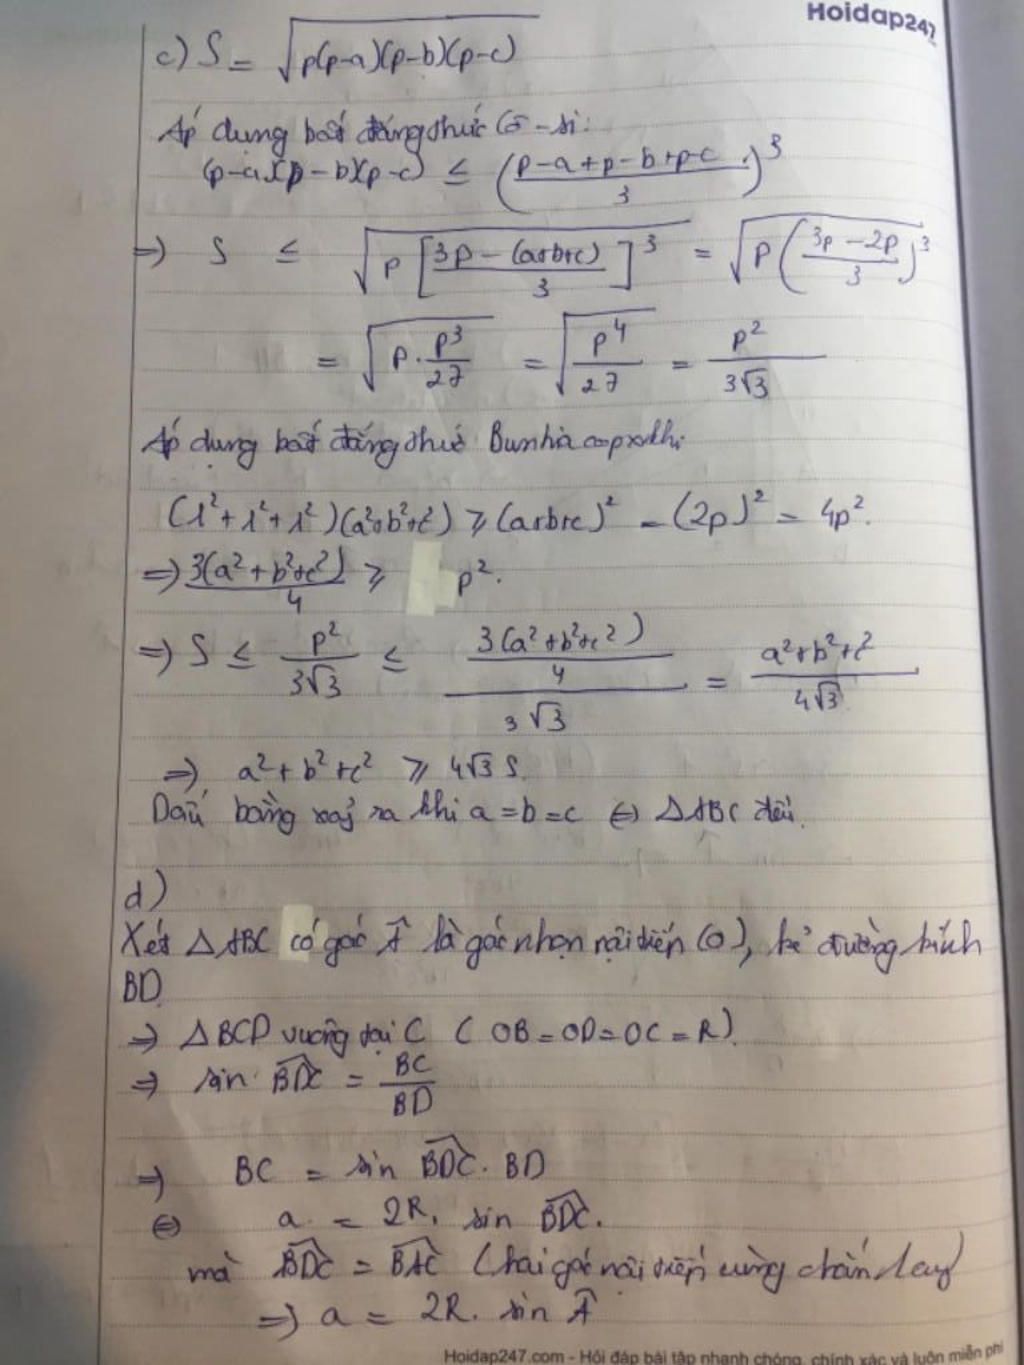 Hoidap247
c) S = √p(p-a)(p-b)(p-c)
Áp dụng bất đẳng thức Cô-si:
(p-a)(p-b)(p-c) ≤ ((p-a+p-b+p-c)/3)^3
=> S ≤ √(p[(3p-(a+b+c))/3]^3) = √(p((3p-2p)/3)^3)
= √(p·p^3/27) = √(p^4/27) = p^2/(3√3)
Áp dụng bất đẳng thức Bunhiacopxkhi
(1²+1²+1²)(a²+b²+c²) ≥ (a+b+c)² = (2p)² = 4p².
=> 3(a²+b²+c²)/4 ≥ p².
=> S ≤ p²/(3√3) ≤ (3(a²+b²+c²)/4)/(3√3) = (a²+b²+c²)/(4√3)
=> a²+b²+c² ≥ 4√3 S
Dấu bằng xảy ra khi a=b=c <=> ΔABC đều.
d)
Xét ΔABC có góc Â là góc nhọn nội tiếp (O), kẻ đường kính
BD
=> ΔBCD vuông tại C (OB=OD=OC=R)
=> sin BDC^ = BC/BD
=> BC = sin BDC^. BD
<=> a = 2R. sin BDC^.
mà BDC^ = BAC^ (hai góc nội tiếp cùng chắn 1 cung)
=> a = 2R. sin Â
Hoidap247.com - Hỏi đáp bài tập nhanh chóng, chính xác và luôn miễn phí